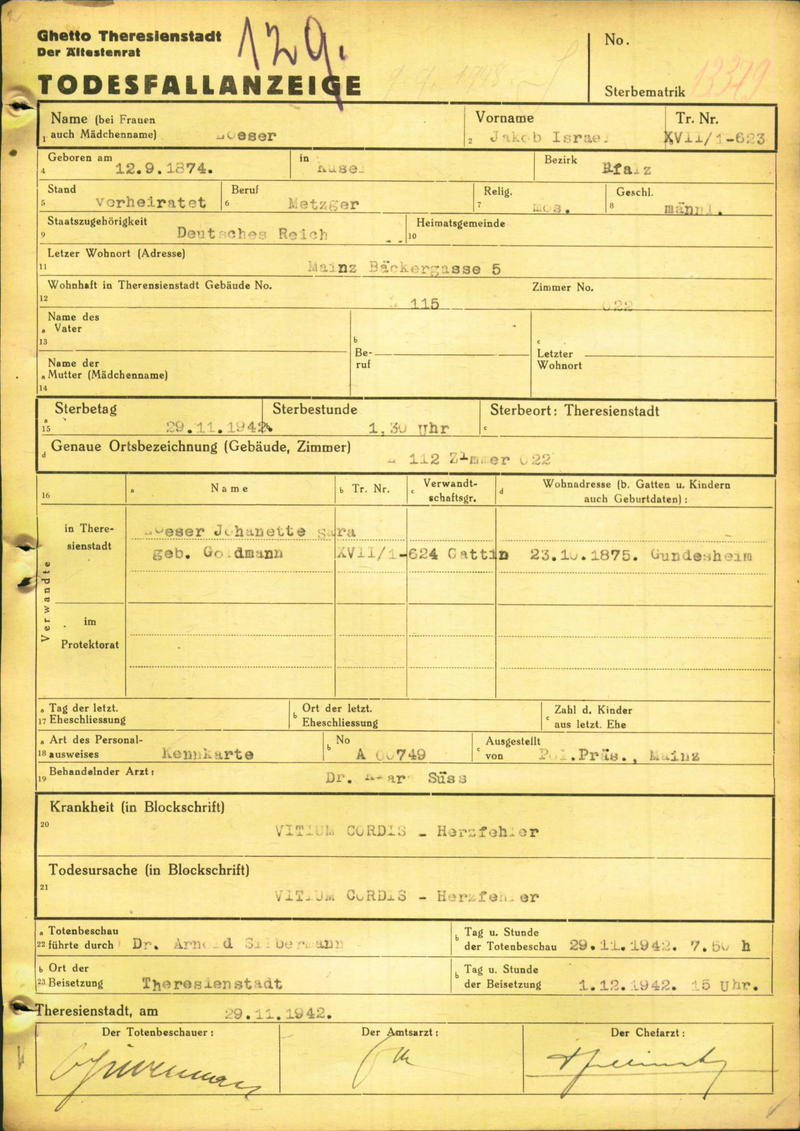 Ghetto Theresienstadt
Der Ältestenrat
129.
TODESFALLANZEIGE
No.
Sterbematrik 13379
Name (bei Frauen
1 auch Mädchenname)
Vorname
2 Jakob Israel
Tr. Nr.
XVII/1-623
Geboren am
4 12.9.1874.
in
Bezirk
Pfalz
Stand
5 verheiratet
Beruf
6 Metzger
Relig.
7 mos.
Geschl.
8 männl.
Staatszugehörigkeit
9 Deutsches Reich
Heimatsgemeinde
10
Letzer Wohnort (Adresse)
11 Mainz Bäckergasse 5
Wohnhaft in Theresienstadt Gebäude No.
12 115
Zimmer No.
022
Name des
a Vater
13
b
Be-
ruf
c
Letzter
Wohnort
Name der
a Mutter (Mädchenname)
14
a Sterbetag
15 29.11.1942
b Sterbestunde
1,30 Uhr
Sterbeort: Theresienstadt
c
Genaue Ortsbezeichnung (Gebäude, Zimmer)
d 112 Zimmer 022
16
a Name
b Tr. Nr.
c Verwandt-
schaftsgr.
d Wohnadresse (b. Gatten u. Kindern
auch Geburtdaten) :
Verwandte
in There-
sienstadt
Johanette Sara
geb. Goldmann XVII/1-624 Gattin 23.10.1875. Gundesheim
im
Protektorat
a Tag der letzt.
17 Eheschliessung
b Ort der letzt.
Eheschliessung
c Zahl d. Kinder
aus letzt. Ehe
a Art des Personal-
18 ausweises Kennkarte
b No
A 00749
c Ausgestellt
von Pol.Präs., Mainz
Behandelnder Arzt :
19 Dr. Süss
Krankheit (in Blockschrift)
20
VITIUM CORDIS - Herzfehler
Todesursache (in Blockschrift)
21
VITIUM CORDIS - Herzfehler
a Totenbeschau
22 führte durch Dr. Arnold Silbermann
b Tag u. Stunde
der Totenbeschau 29.11.1942. 7.50 h
b Ort der
23 Beisetzung Theresienstadt
b Tag u. Stunde
der Beisetzung 1.12.1942. 15 Uhr.
Theresienstadt, am 29.11.1942.
Der Totenbeschauer :
Der Amtsarzt :
Der Chefarzt :